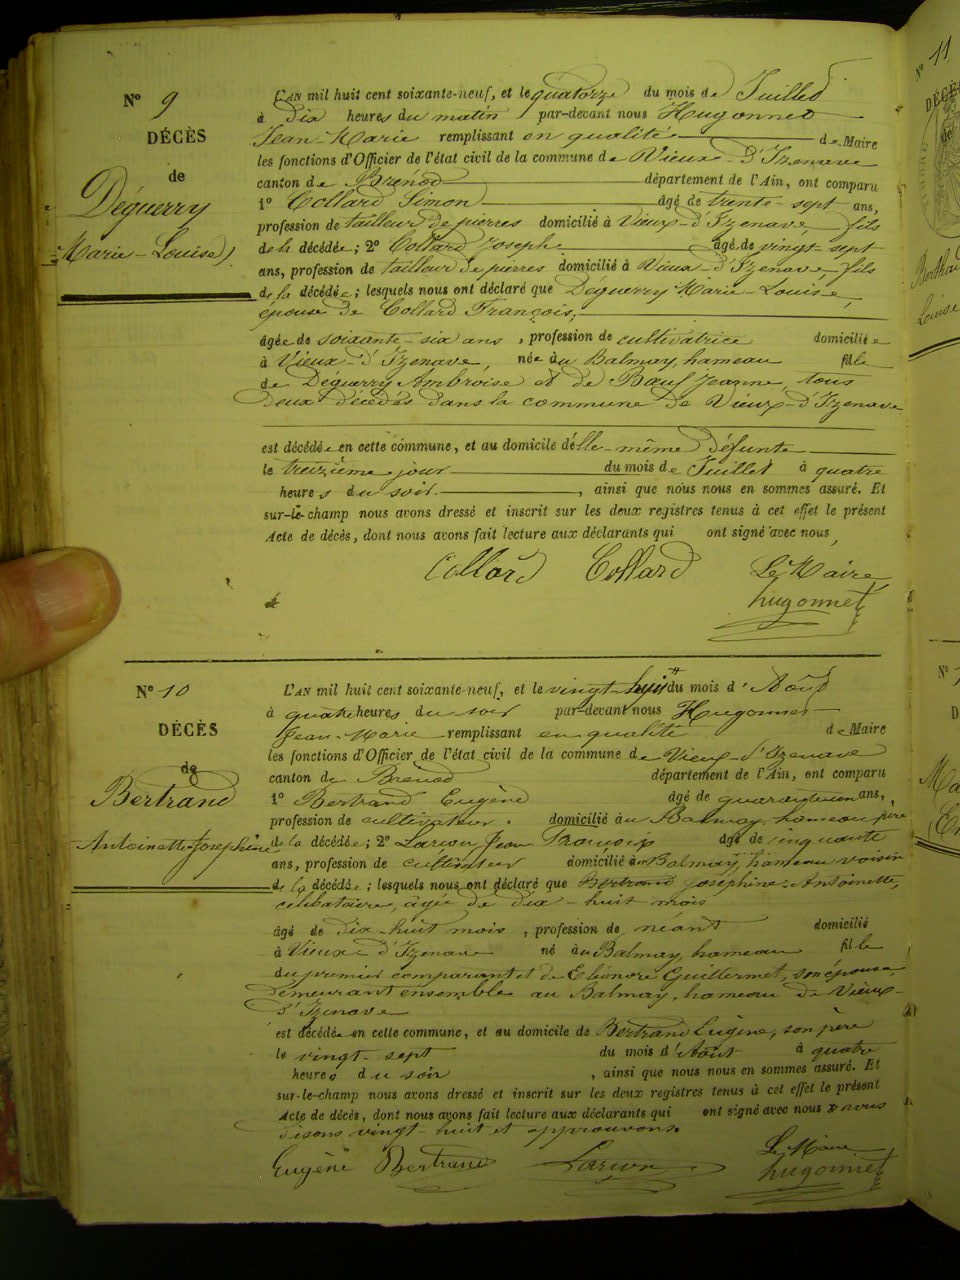 Nº 9
DÉCÈS
de
Déguerry
Marie-Louise
L'AN mil huit cent soixante-neuf, et le quatorze du mois de Juillet
à Dix heures du matin par-devant nous Hugonnet
Jean-Marie remplissant en qualité de Maire
les fonctions d'Officier de l'état civil de la commune de Vieux-d'Izenave
canton de Brénod département de l'Ain, ont comparu
1º Collard Simon âgé de trente-sept ans,
profession de tailleur de pierres domicilié à Vieux-d'Izenave fils
de la décédée ; 2º Collard Joseph âgé de vingt-sept
ans, profession de tailleur de pierres domicilié à Vieux-d'Izenave fils
de la décédée ; lesquels nous ont déclaré que Déguerry Marie-Louise,
épouse de Collard François,
âgée de soixante-six ans, profession de cultivatrice domiciliée
à Vieux-d'Izenave, née au Balmay, hameau fille
de Déguerry Ambroise et de Bœuf Jeanne, tous
deux décédés dans la commune de Vieux-d'Izenave
est décédée en cette commune, et au domicile d'elle-même défunte
le treizième jour du mois de Juillet à quatre
heures du soir, ainsi que nous nous en sommes assuré. Et
sur-le-champ nous avons dressé et inscrit sur les deux registres tenus à cet effet le présent
Acte de décès, dont nous avons fait lecture aux déclarants qui ont signé avec nous,
Collard Collard Le Maire
hugonnet
Nº 10
DÉCÈS
de
Bertrand
Antoinette-Josephine
L'AN mil huit cent soixante-neuf, et le vingt-huit du mois d'Août
à quatre heures du soir par-devant nous Hugonnet
Jean-Marie remplissant en qualité de Maire
les fonctions d'Officier de l'état civil de la commune de Vieux-d'Izenave
canton de Brénod département de l'Ain, ont comparu
1º Bertrand Eugène âgé de quarante un ans,
profession de cultivateur. domicilié au Balmay, hameau père
de la décédée ; 2º Larion Jean François âgé de cinquante
ans, profession de cultivateur domicilié au Balmay, hameau voisin
de la décédée ; lesquels nous ont déclaré que Bertrand Josephine-Antoinette,
célibataire, âgée de dix-huit mois
âgé de dix-huit mois, profession de néant domicilié
à Vieux d'Izenave né au Balmay, hameau fille
du premier comparant et de Eléonore Guillermet, son épouse,
demeurant ensemble au Balmay, hameau de Vieux-
d'Izenave
est décédée en cette commune, et au domicile de Bertrand Eugène, son père
le vingt-sept du mois d'Août à quatre
heures du soir, ainsi que nous nous en sommes assuré. Et
sur-le-champ nous avons dressé et inscrit sur les deux registres tenus à cet effet le présent
Acte de décès, dont nous avons fait lecture aux déclarants qui ont signé avec nous nous
disons vingt-huit et approuvons.
Eugène Bertrand Larion Le Maire
hugonnet
Nº 11
DÉCÈS
Louise